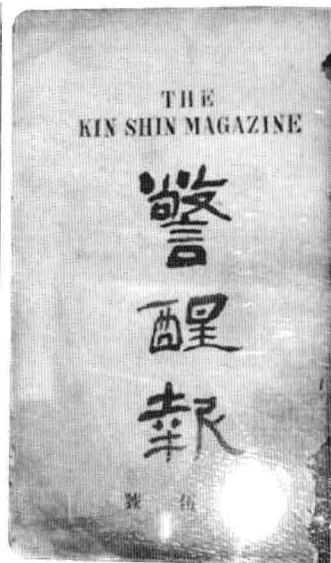 THE
KIN SHIN MAGAZINE
警
醒
報